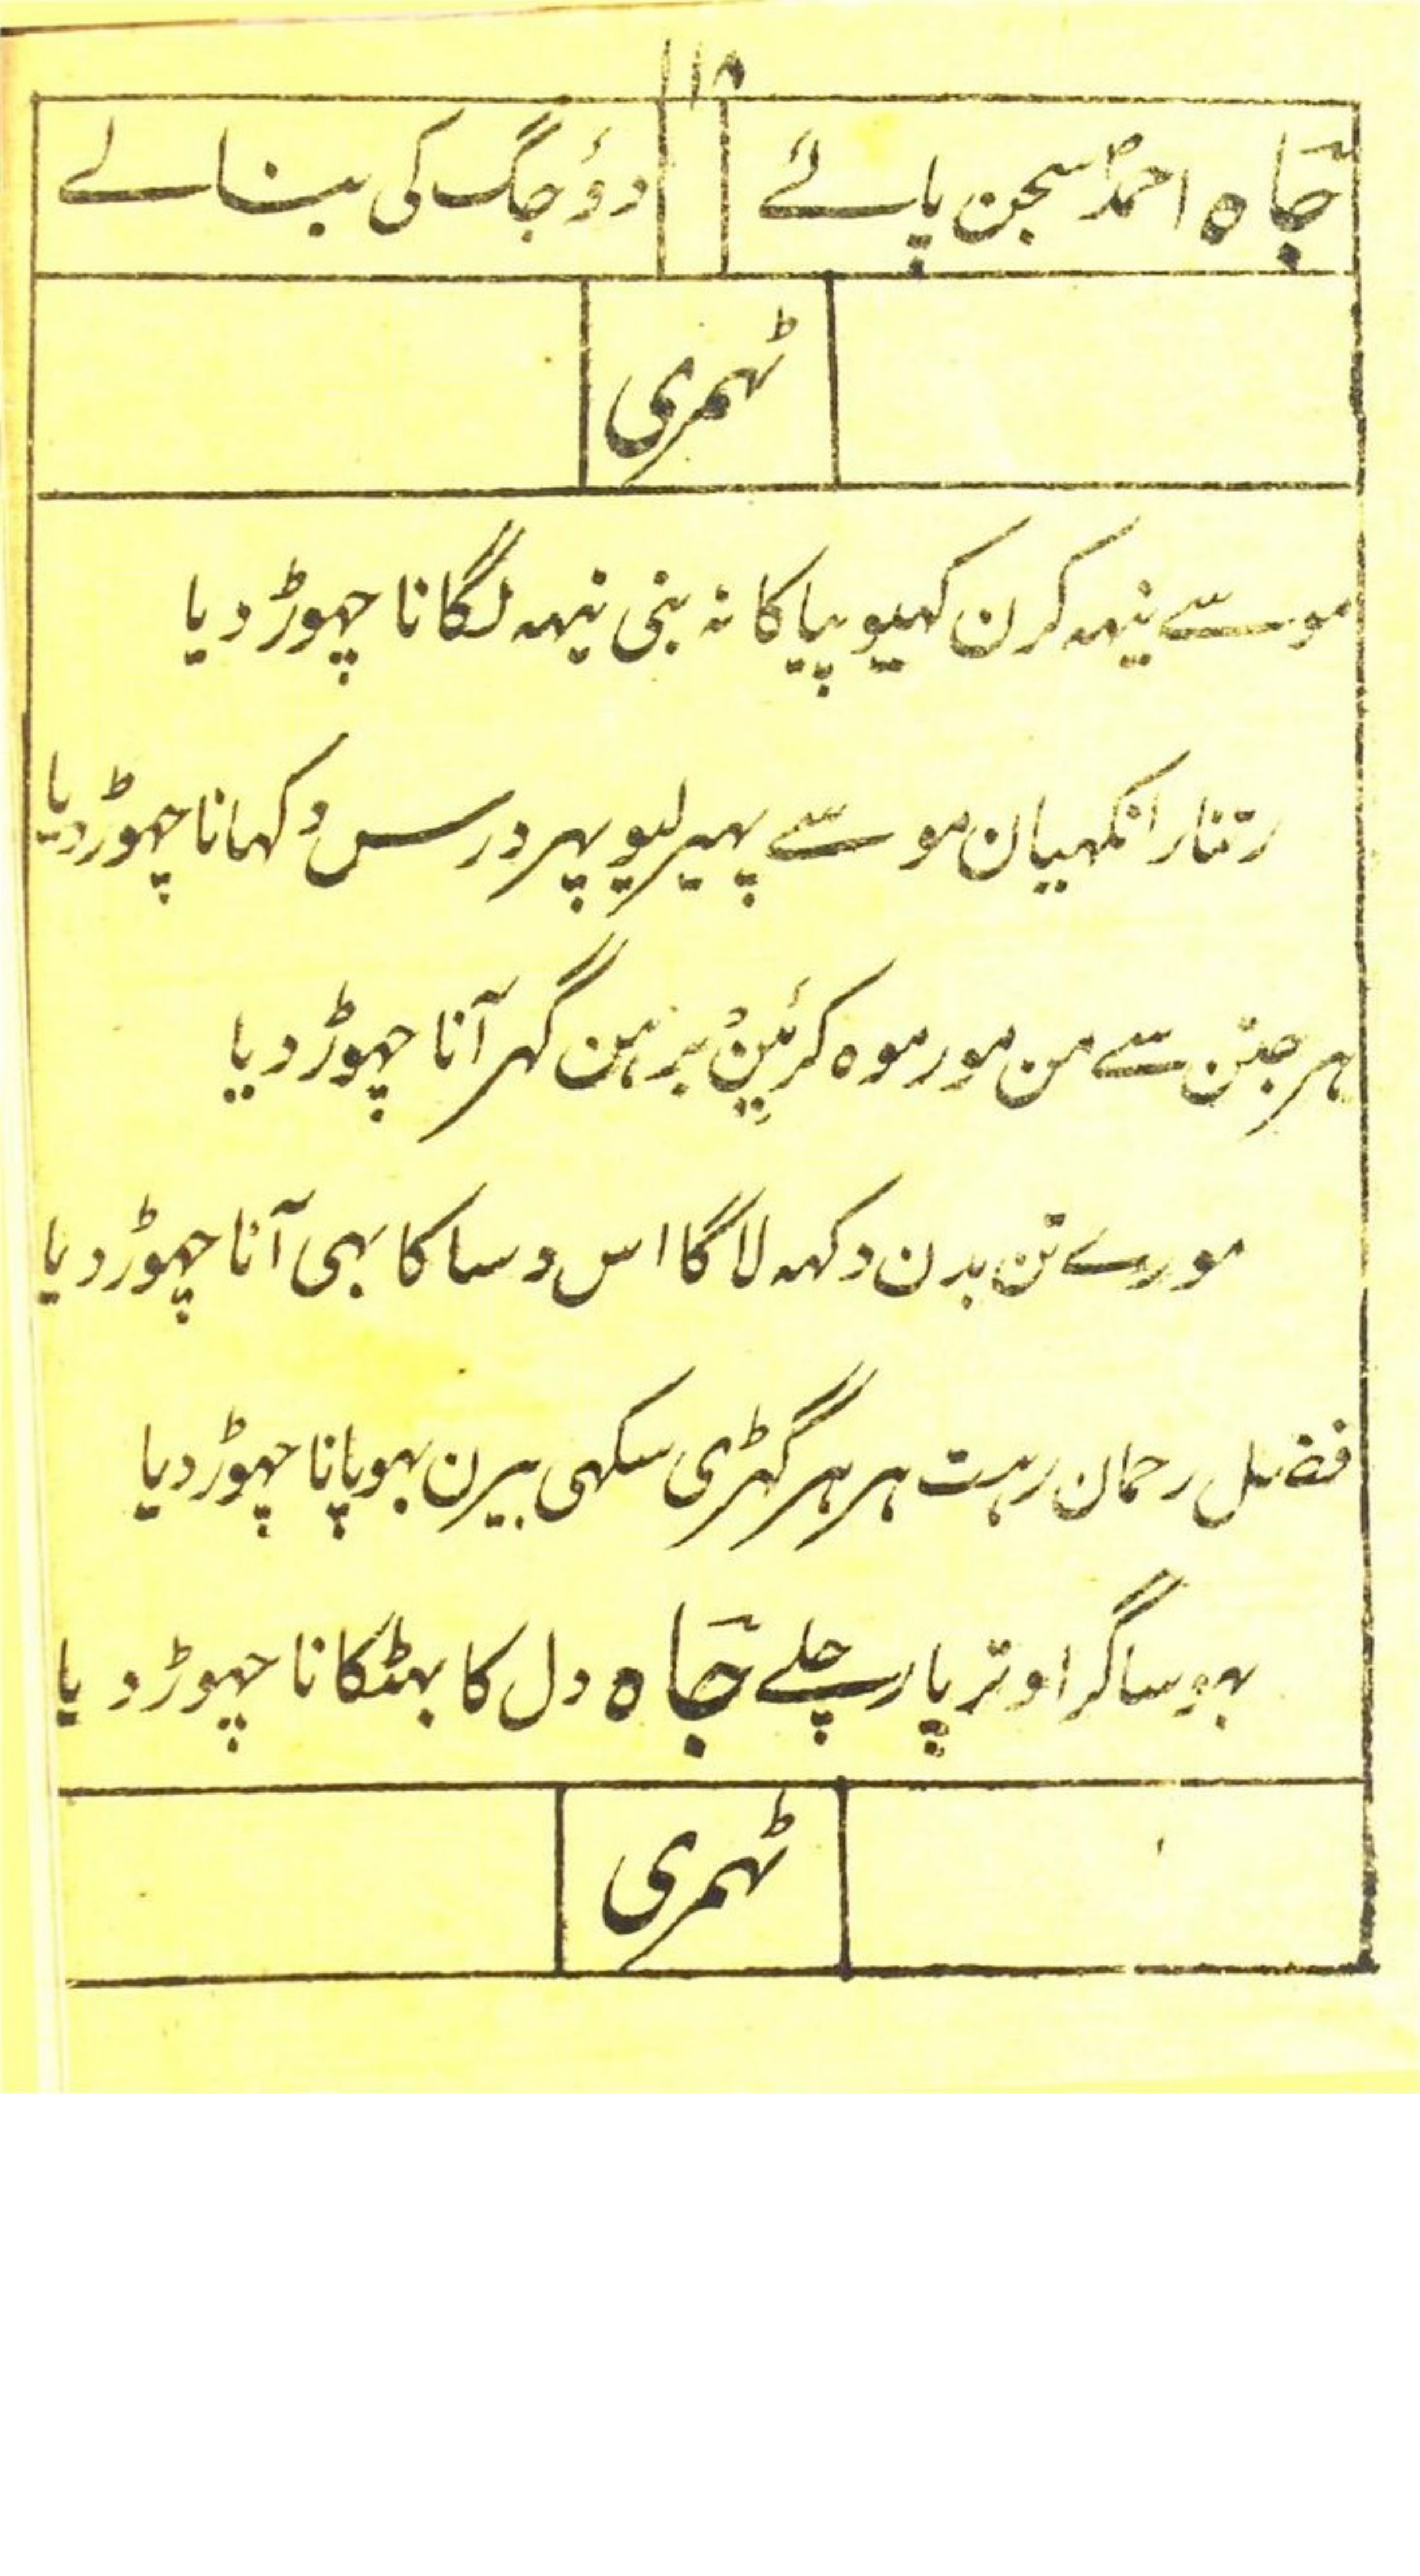 ۱۱۵
جاؔہ احمدؐ سجن پائے دؤ جگ کی بنا لے
ٹہمری
موسے نیہہ کرن کہیو پیا کا نہ بنی نیہہ لگانا چہوڑ دیا
رتنار انکہیان موسے پہیر لیو پہر درس دکہانا چہوڑ دیا
ہر جتن سے من مور موہ کرئین برہن گہر آنا چہوڑ دیا
مورے تن بدن دکہہ لاگا اس وسا کا بہی آنا چہوڑ دیا
فضل رحمان رہت ہر ہر گہڑی سکہی بیرن بہو پانا چہوڑ دیا
بہو ساگر اوتر پار چلے جاؔہ دل کا بہٹکانا چہوڑ دیا
ٹہمری